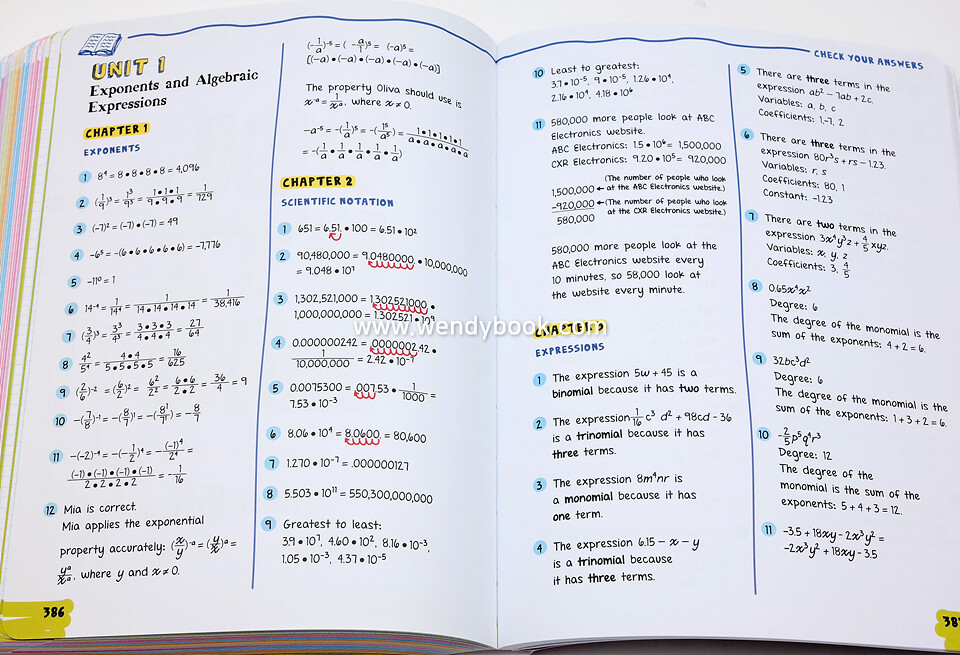 UNIT 1
Exponents and Algebraic
Expressions
CHAPTER 1
EXPONENTS
1 8⁴ = 8 • 8 • 8 • 8 = 4,096
2 (1/9)³ = 1³/9³ = 1 • 1 • 1/9 • 9 • 9 = 1/729
3 (-7)² = (-7) • (-7) = 49
4 -6⁵ = -(6 • 6 • 6 • 6 • 6) = -7,776
5 -11⁰ = 1
6 14⁻⁴ = 1/14⁴ = 1/14 • 14 • 14 • 14 = 1/38,416
7 (3/4)³ = 3³/4³ = 3 • 3 • 3/4 • 4 • 4 = 27/64
8 4²/5⁴ = 4 • 4/5 • 5 • 5 • 5 = 16/625
9 (2/6)⁻² = (6/2)² = 6²/2² = 6 • 6/2 • 2 = 36/4 = 9
10 -(7/8)⁻¹ = -(8/7)¹ = -(8¹/7¹) = -8/7
11 -(-2)⁻⁴ = -(-1/2)⁴ = -(-1)⁴/2⁴ =
(-1) • (-1) • (-1) • (-1)/2 • 2 • 2 • 2 = -1/16
12 Mia is correct.
Mia applies the exponential
property accurately: (x/y)⁻ᵃ = (y/x)ᵃ =
yᵃ/xᵃ, where y and x ≠ 0.
386
(-1/a)⁻⁵ = (-a/1)⁵ = (-a)⁵ =
[(-a) • (-a) • (-a) • (-a) • (-a)]
The property Oliva should use is
x⁻ᵃ = 1/xᵃ, where x ≠ 0.
-a⁻⁵ = -(1/a)⁵ = -(1⁵/a⁵) = 1 • 1 • 1 • 1 • 1/a • a • a • a • a
= -(1/a • 1/a • 1/a • 1/a • 1/a)
CHAPTER 2
SCIENTIFIC NOTATION
1 651 = 6.51. • 100 = 6.51 • 10²
2 90,480,000 = 9.0480000. • 10,000,000
= 9.048 • 10⁷
3 1,302,521,000 = 1.302521000. •
1,000,000,000 = 1.302521 • 10⁹
4 0.000000242 = .0000002.42 •
1/10,000,000 = 2.42 • 10⁻⁷
5 0.0075300 = .007.53 • 1/1000 =
7.53 • 10⁻³
6 8.06 • 10⁴ = 8.0600. = 80,600
7 1.270 • 10⁻⁷ = .000000127
8 5.503 • 10¹¹ = 550,300,000,000
9 Greatest to least:
3.9 • 10⁷, 4.60 • 10², 8.16 • 10⁻³,
1.05 • 10⁻³, 4.37 • 10⁻⁵
CHECK YOUR ANSWERS
10 Least to greatest:
3.7 • 10⁻⁵, 9 • 10⁻⁵, 1.26 • 10⁴,
2.16 • 10⁴, 4.18 • 10⁶
11 580,000 more people look at ABC
Electronics website.
ABC Electronics: 1.5 • 10⁶ = 1,500,000
CXR Electronics: 9.20 • 10⁵ = 920,000
(The number of people who look
1,500,000 ← at the ABC Electronics website.)
-920,000 ← (The number of people who look
at the CXR Electronics website.)
580,000
580,000 more people look at the
ABC Electronics website every
10 minutes, so 58,000 look at
the website every minute.
www.wendybook.com
CHAPTER 3
EXPRESSIONS
1 The expression 5w + 45 is a
binomial because it has two terms.
2 The expression 1/16 c³ d² + 98cd - 36
is a trinomial because it has
three terms.
3 The expression 8m⁴nr is
a monomial because it has
one term.
4 The expression 6.15 - x - y
is a trinomial because
it has three terms.
5 There are three terms in the
expression ab² - 7ab + 2c.
Variables: a, b, c
Coefficients: 1,-7, 2
6 There are three terms in the
expression 80r³s + rs - 1.23.
Variables: r, s
Coefficients: 80, 1
Constant: -1.23
7 There are two terms in the
expression 3x⁴y³z + 4/5 xyz.
Variables: x, y, z
Coefficients: 3, 4/5
8 0.65x⁴x²
Degree: 6
The degree of the monomial is the
sum of the exponents: 4 + 2 = 6.
9 32bc³d²
Degree: 6
The degree of the monomial is the
sum of the exponents: 1 + 3 + 2 = 6.
10 -2/5p⁵q⁴r³
Degree: 12
The degree of the
monomial is the sum of the
exponents: 5 + 4 + 3 = 12.
11 -3.5 + 18xy - 2x³y² =
-2x³y² + 18xy - 3.5